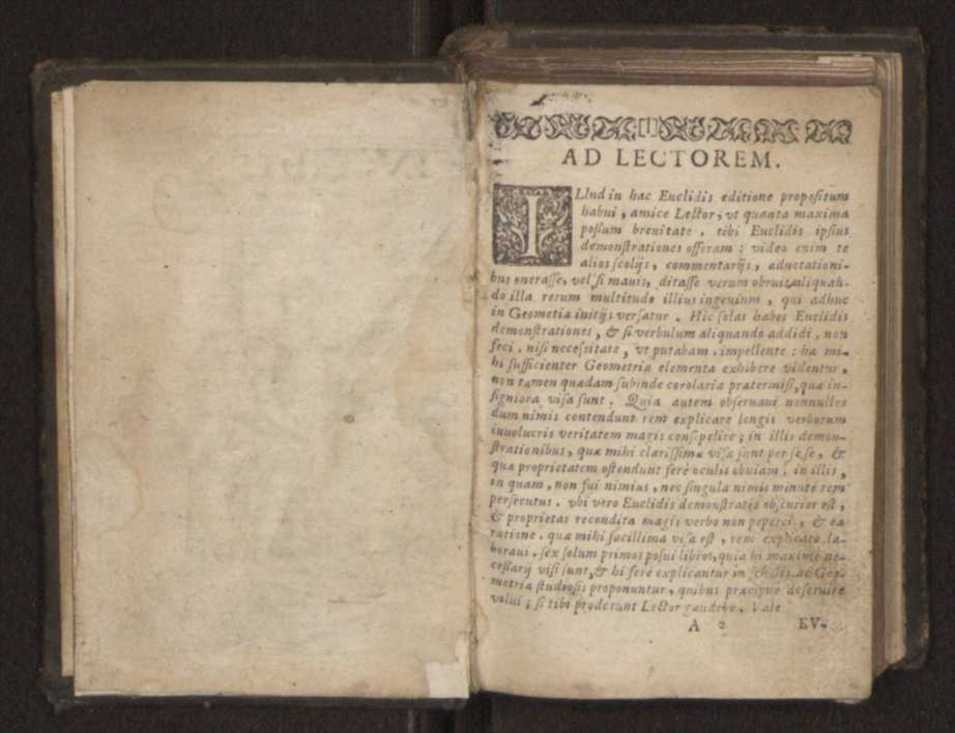 AD LECTOREM.
ILlud in hac Euclidis editione propositum
habui, amice Lector, vt quanta maxima
possum breuitate, tibi Euclidis ipsius
demonstrationes offeram; video enim te
alios scolijs, commentarijs, adnotationi-
bus onerasse, vel si mauis, ditasse verum obruit aliquan-
do illa rerum multitudo illius ingenium, qui adhuc
in Geometia initijs versatur. Hic solas habes Euclidis
demonstrationes, & si verbulum aliquando addidi, non
feci, nisi necessitate, vt putabam, impellente: hæ mi-
hi sufficienter Geometriæ elementa exhibere videntur,
non tamen quædam subinde corolaria prætermisi, quæ in-
signiora visa sunt. Quia autem obseruaui nonnullos
dum nimis contendunt rem explicare longis verborum
inuolucris veritatem magis consepelire; in illis demon-
strationibus, quæ mihi clarissimæ visæ sunt per sese, &
quæ proprietatem ostendunt ferè oculis obuiam, in illis,
in quam, non fui nimius, nec singula nimis minutè rem
persecutus. vbi vero Euclidis demonstratio obscurior est,
& proprietas recondita magis verbo non peperci, & ea
ratione, quæ mihi facillima visa est, rem explicare la-
boraui. sex solum primos posui libros, quia hi maxime ne-
cessarij visi sunt, & hi ferè explicantur in scholis, ac Geo-
metriæ studiosis proponuntur, quibus præcipue deseruire
volui; si tibi proderunt Lector gaudebo. Vale
A 2 EV-